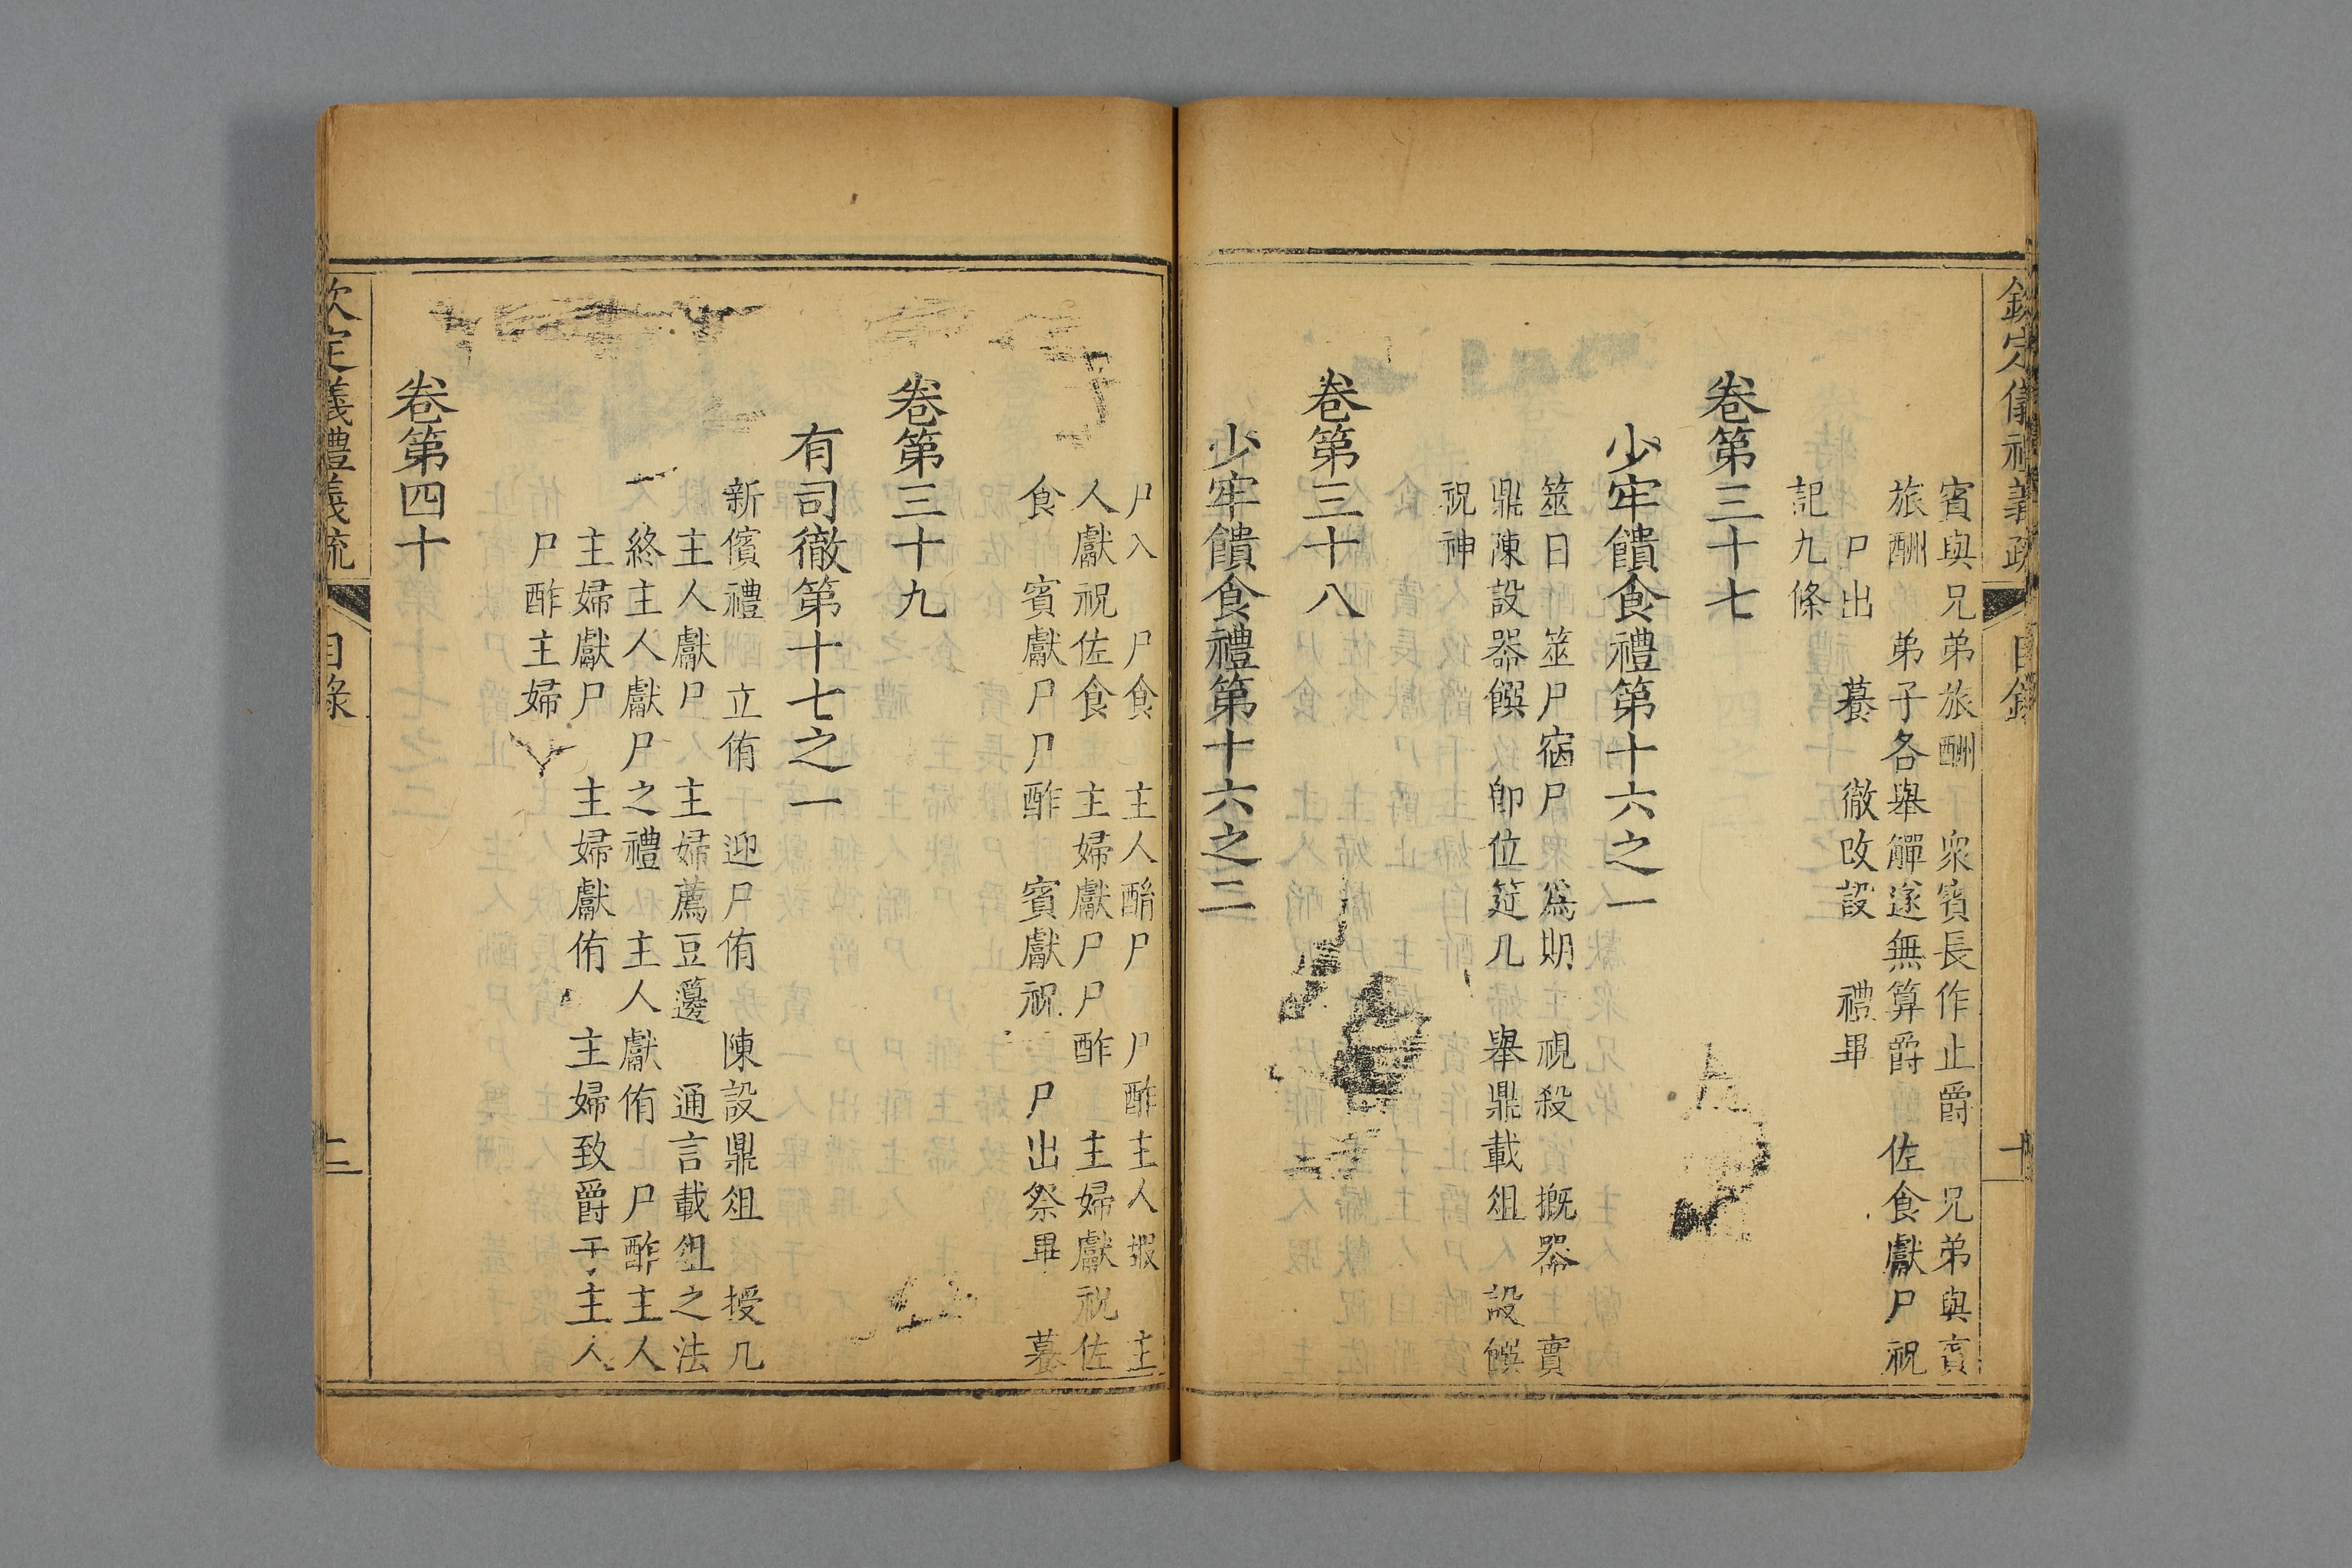 欽定儀禮義疏 目錄 十
賓與兄弟旅酬 衆賓長作止爵 兄弟與賓
旅酬 弟子各舉觶遂無算爵 佐食獻尸祝
尸出 養 徹改設 禮畢
記九條
卷第三十七
少牢饋食禮第十六之一
筮日 筮尸宿尸 爲期 視殺 摡器 實
鼎陳設器饌 卽位筵几 舉鼎載俎 設饌
祝神
卷第三十八
少牢饋食禮第十六之二
尸入 尸食 主人酳尸 尸酢主人嘏 主
人獻祝佐食 主婦獻尸尸酢 主婦獻祝佐
食 賓獻尸尸酢 賓獻祝 尸出祭畢 養
卷第三十九
有司徹第十七之一
新儐禮 立侑 迎尸侑 陳設鼎俎 授几
主人獻尸 主婦薦豆籩 通言載俎之法
終主人獻尸之禮 主人獻侑 尸酢主人
主婦獻尸 主婦獻侑 主婦致爵于主人
尸酢主婦
卷第四十
欽定義禮義疏 目錄